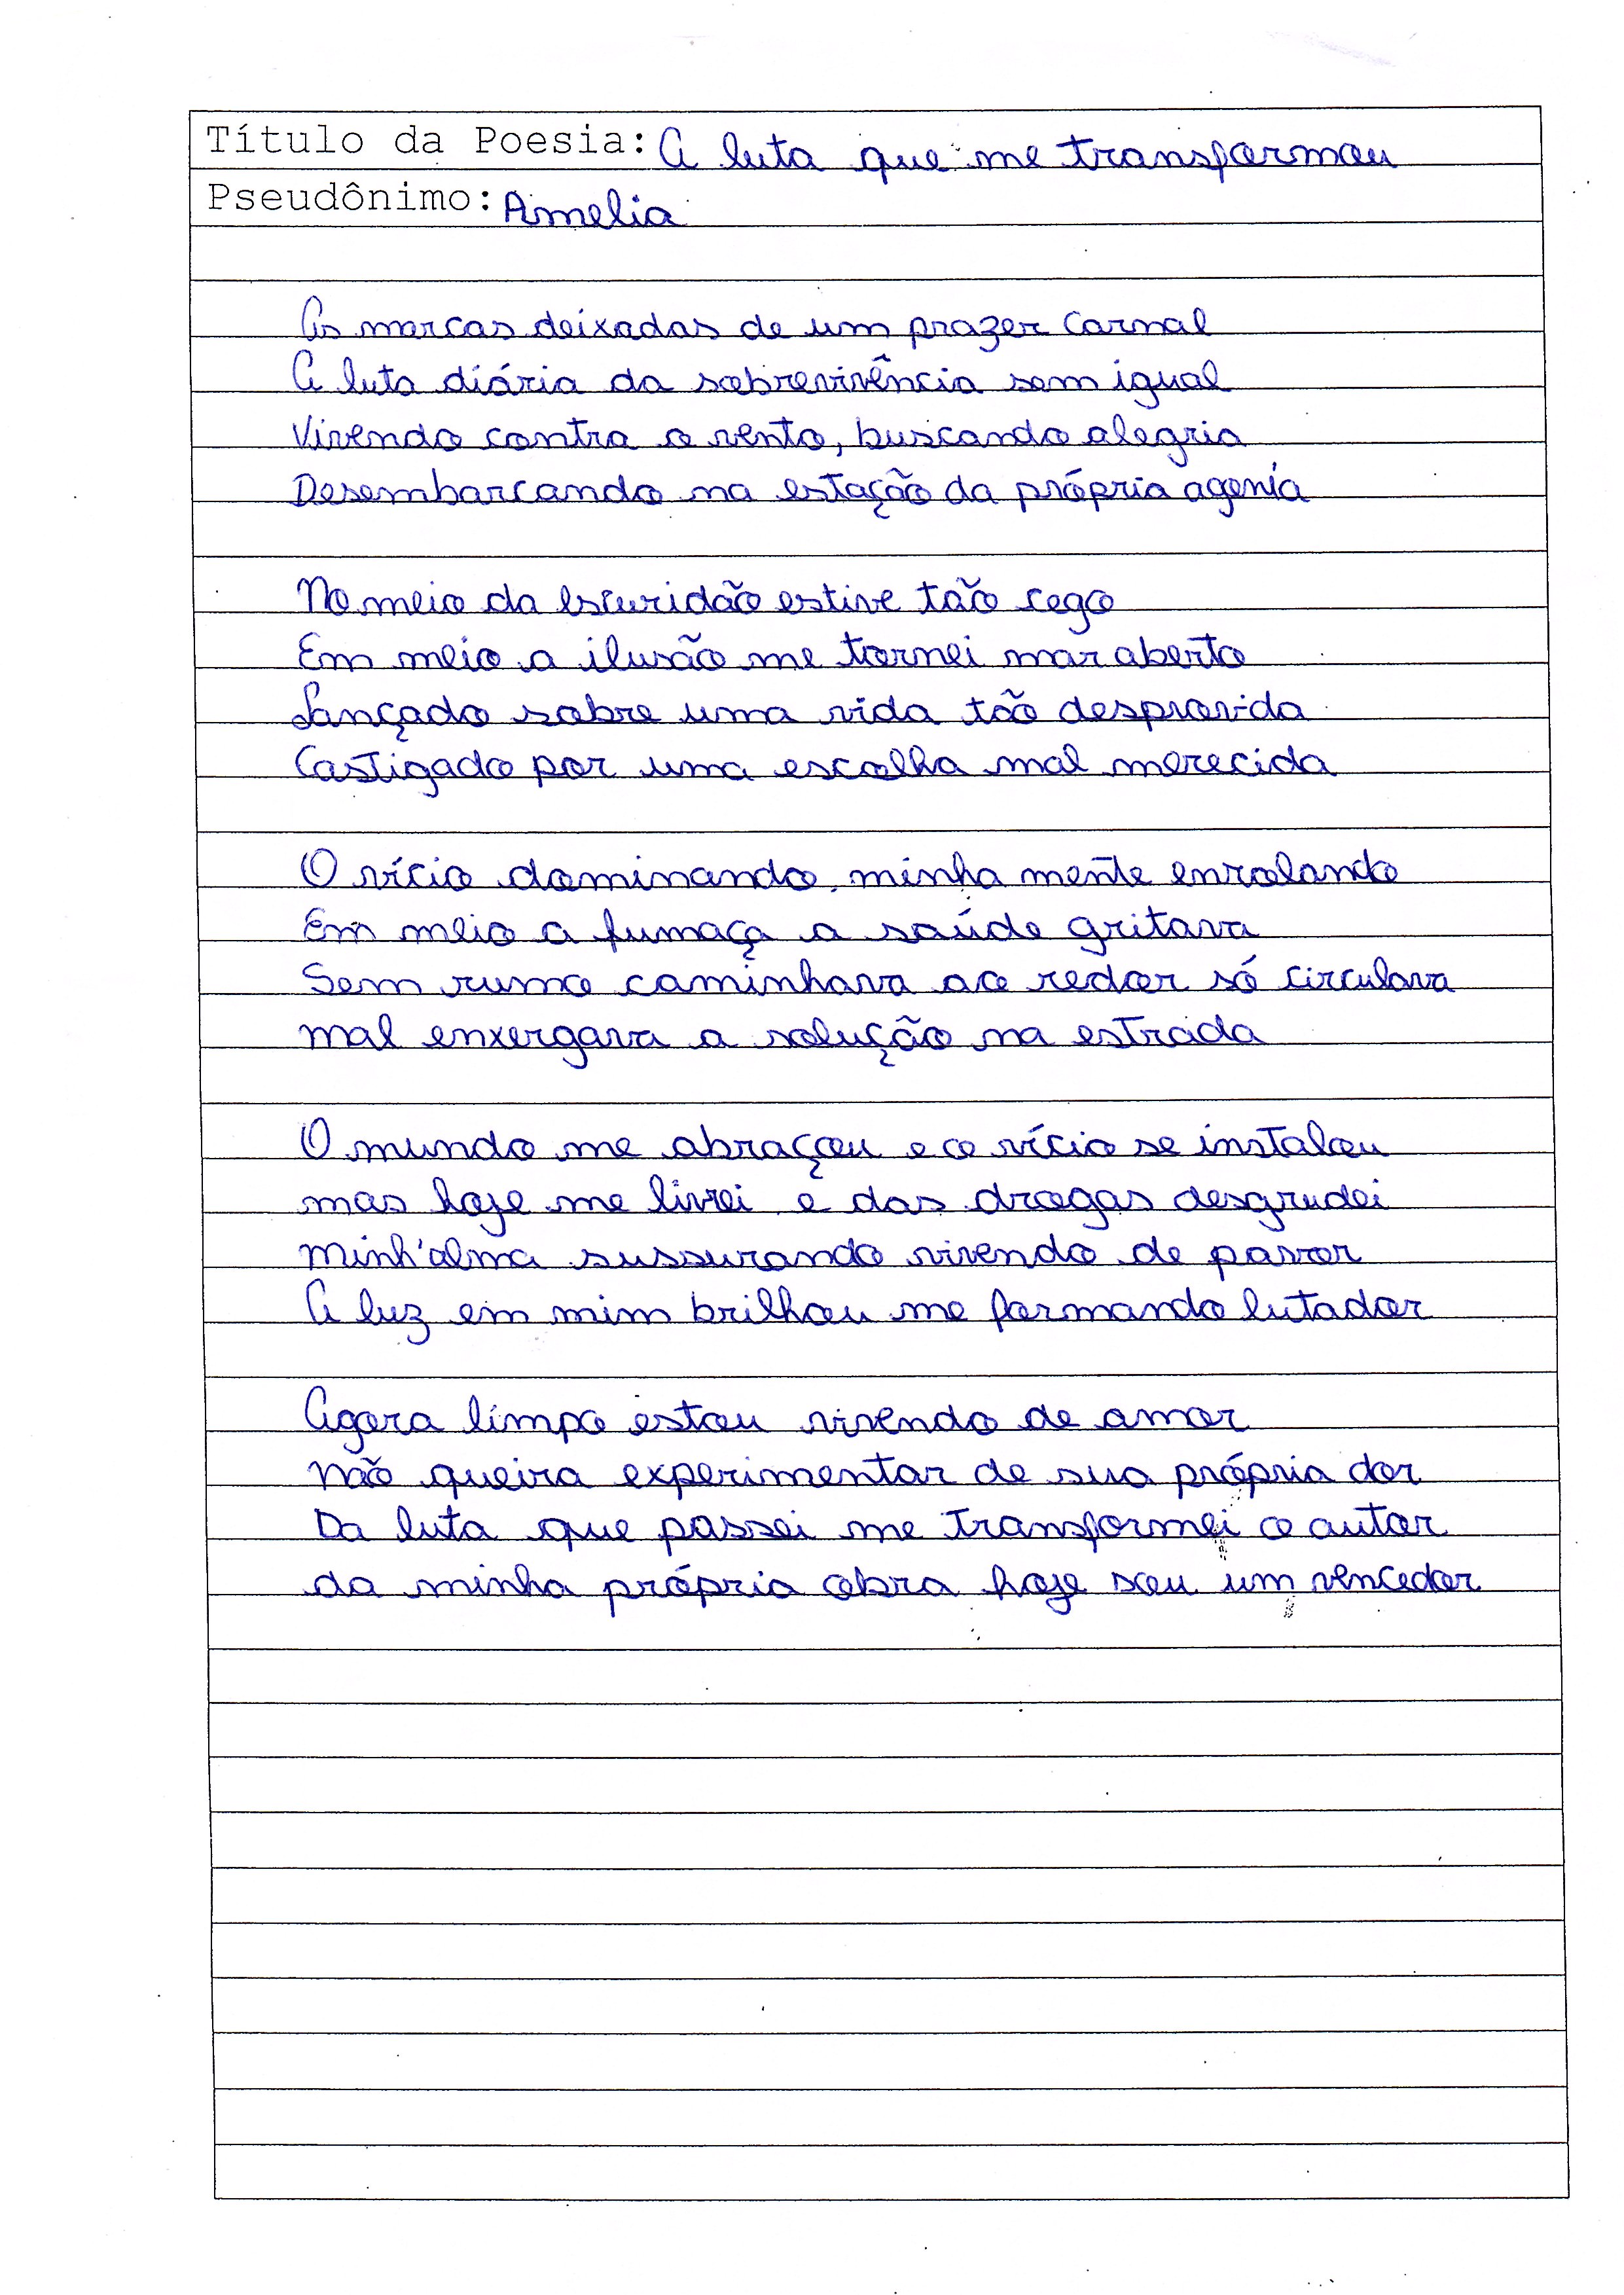 Título da Poesia: A luta que me transformou
Pseudônimo: Amelia
As marcas deixadas de um prazer carnal
A luta diária da sobrevivência sem igual
Vivendo contra o vento, buscando alegria
Desembarcando na estação da própria agonía
No meio da escuridão estive tão cego
Em meio a ilusão me tornei mar aberto
Lançado sobre uma vida tão desprovida
Castigado por uma escolha mal merecida
O vício dominando, minha mente enrolando
Em meio a fumaça a saúde gritava
Sem rumo caminhava ao redor só circulava
mal enxergava a solução na estrada
O mundo me abraçou e o vício se instalou
mas hoje me livrei e das drogas desgrudei
Minh'alma sussurando vivendo de pavor
A luz em mim brilhou me formando lutador
Agora limpo estou vivendo de amor
Não queira experimentar de sua própria dor
Da luta que passei me transformei o autor
da minha própria obra hoje sou um vencedor